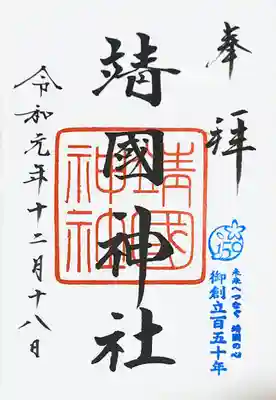 奉拝
靖國神社
靖國神社
150
未来へつなぐ 靖國の心
御創立百五十年
令和元年十二月十八日